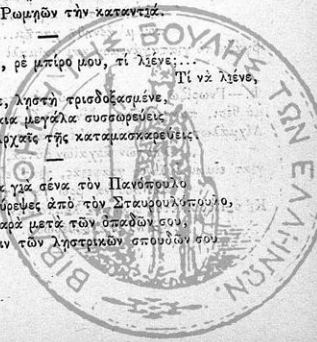 Ρωμηῶν τὴν καταντιά.
, ρὲ μπίρο μου, τί λὲνε;...
Τί νὰ λὲνε,
ληστὴ τρισδοξασμένε,
μεγάλα συσσωρεύεις
ἀρχαῖς τῆς καταμασκαρεύεις.
γιὰ σένα τὸν Πανόπουλο
ἀπὸ τὸν Σταυρουλόπουλο,
μετὰ τῶν ὀπαδῶν σου,
τῶν ληστρικῶν σπουδῶν σου
ΒΙΒΛΙΟΘΗΚΗ ΤΗΣ ΒΟΥΛΗΣ ΤΩΝ ΕΛΛΗΝΩΝ